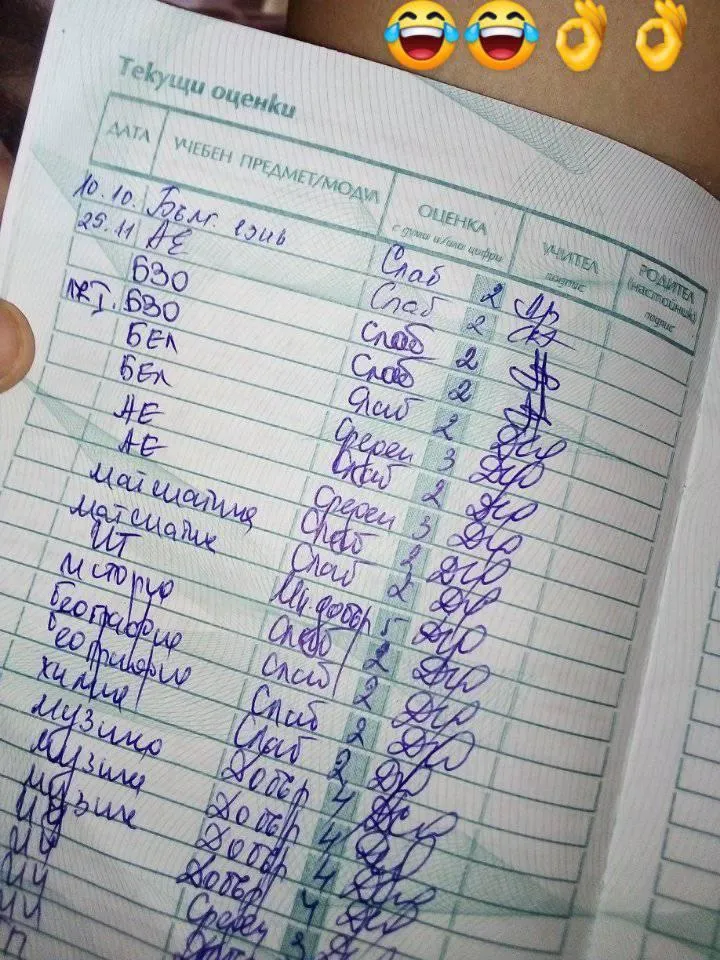 Текущи оценки
ДАТА УЧЕБЕН ПРЕДМЕТ/МОДУЛ ОЦЕНКА с думи и/или цифри УЧИТЕЛ подпис РОДИТЕЛ (настойник) подпис
10.10. Бълг. език Слаб 2
25.11 АЕ Слаб 2
БЗО Слаб 2
БЗО Слаб 2
БЕЛ Слаб 2
БЕЛ Среден 3
АЕ Слаб 2
АЕ Среден 3
математика Слаб 2
математик Слаб 2
ИТ Мн. добър 5
история Слаб 2
География Слаб 2
География Слаб 2
химия Слаб 2
музика Добър 4
музика Добър 4
музик Добър 4
ИИ Добър 4
ИИ Среден 3
ИИ
ИИ